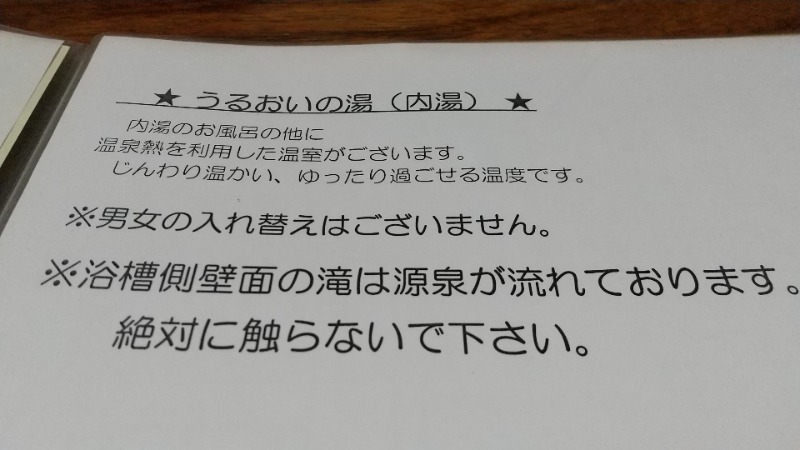 ★ うるおいの湯（内湯） ★
内湯のお風呂の他に
温泉熱を利用した温室がございます。
じんわり温かい、ゆったり過ごせる温度です。
※男女の入れ替えはございません。
※浴槽側壁面の滝は源泉が流れております。
絶対に触らないで下さい。